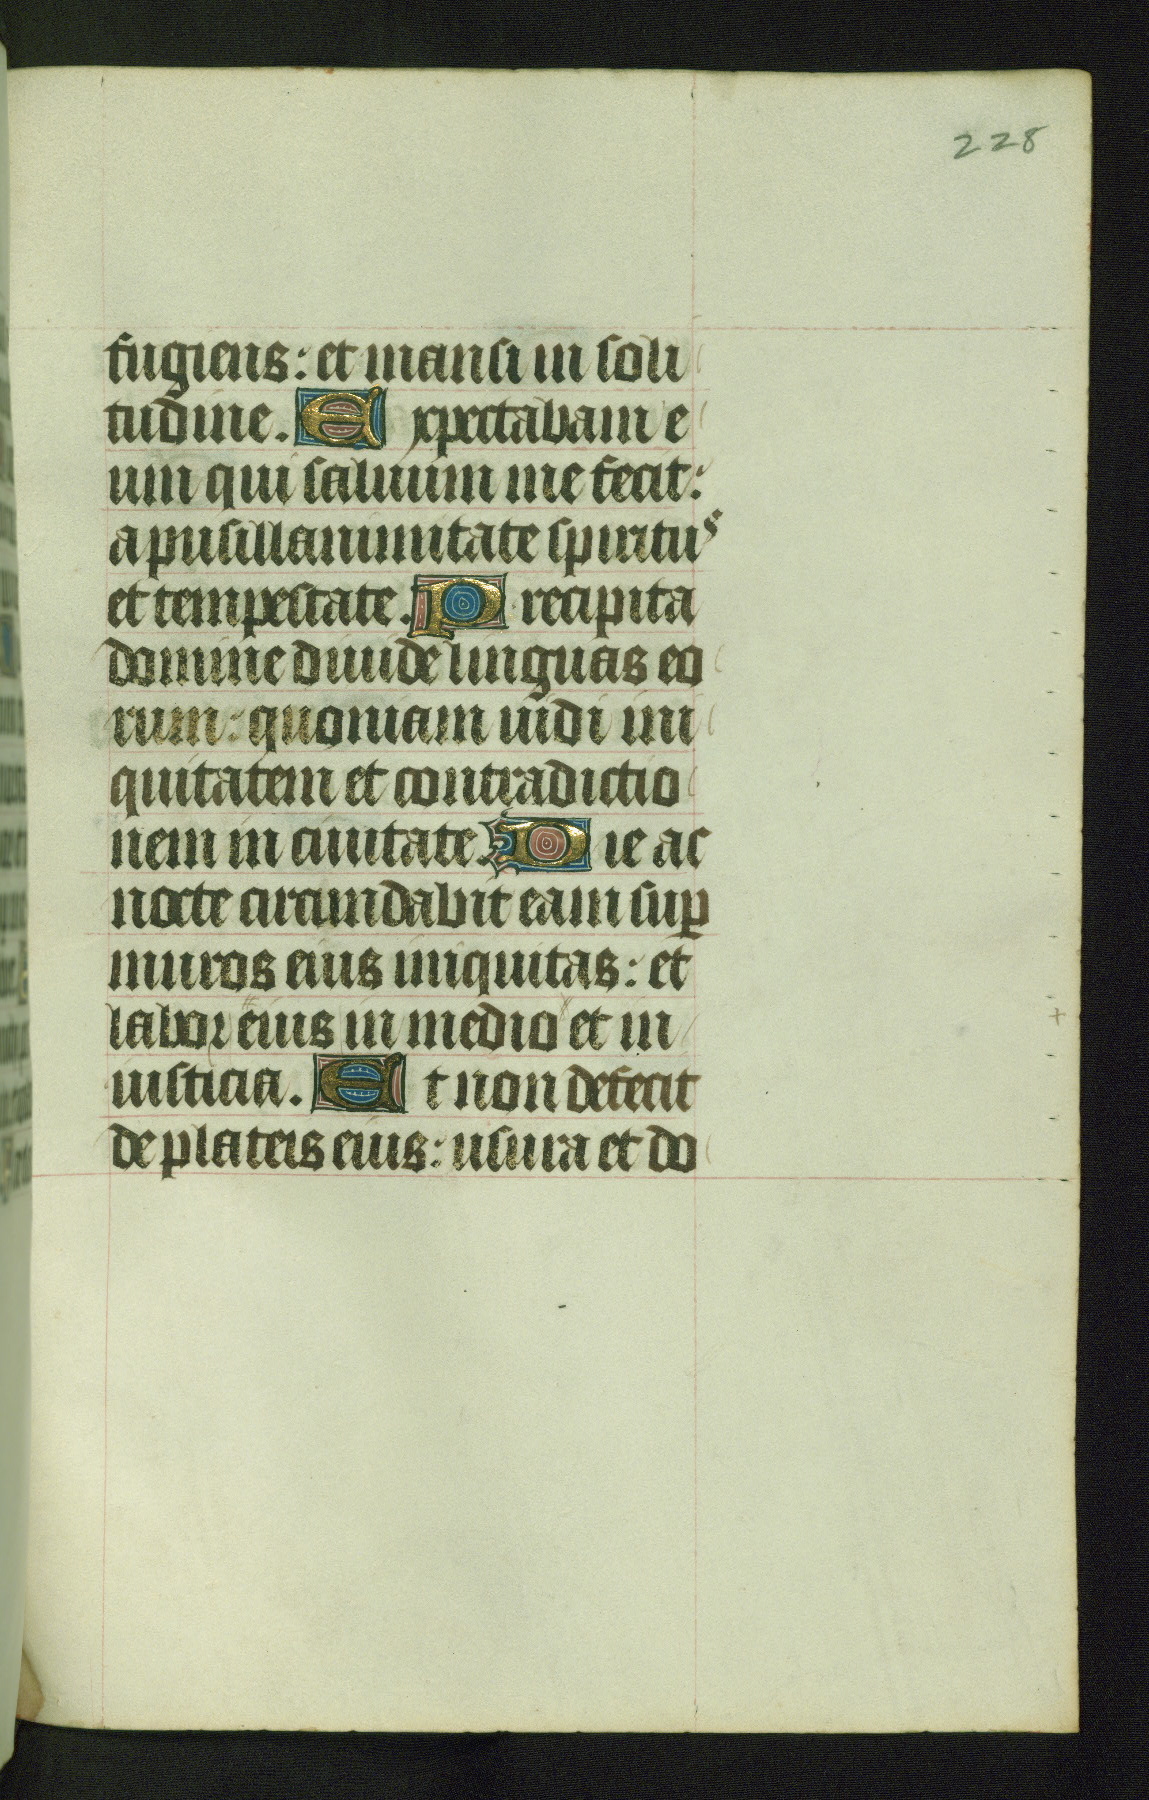 228
fugiens: et mansi in soli
tudine. Expectabam e
um qui saluum me fecit:
a pusillanimitate spiritus
et tempestate. Precipita
domine diuide linguas eo
rum: quoniam uidi ini
quitatem et contradictio
nem in ciuitate. Die ac
nocte circumdabit eam sup
muros eius iniquitas: et
labor eius in medio et in
iusticia. Et non defecit
de plateis eius: usura et do